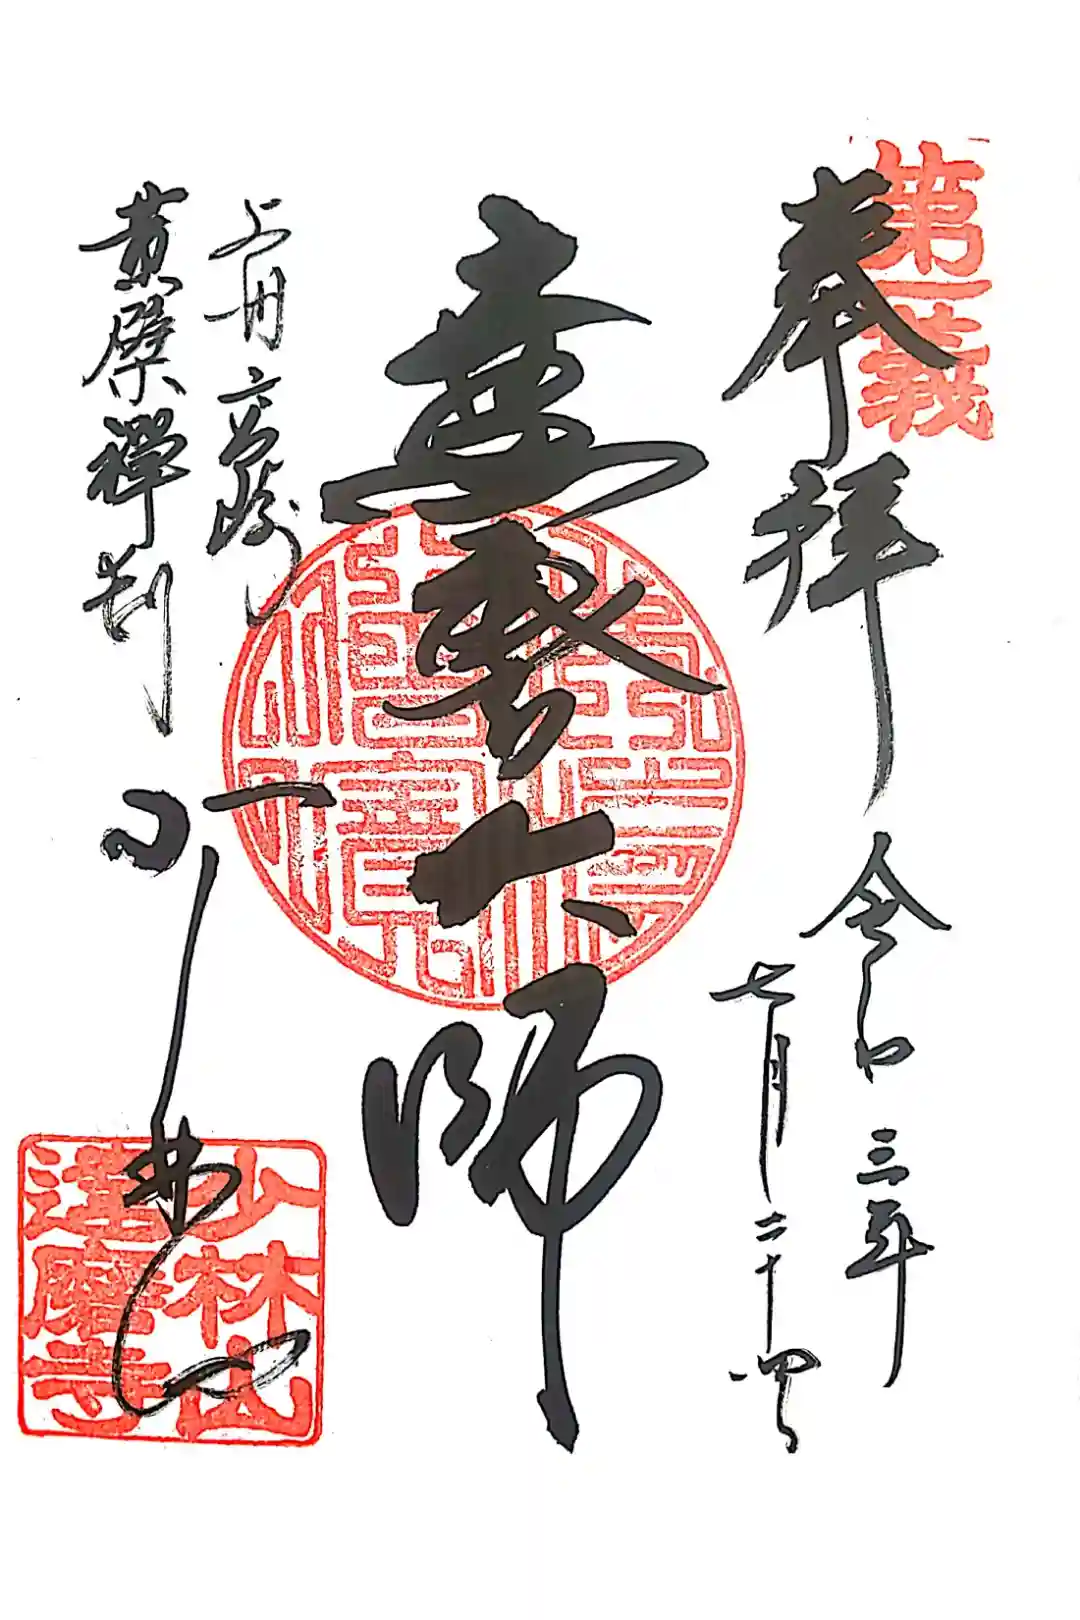 第一義
奉拝
令和三年
七月二十四日
達磨大師
上州高崎
黄檗禪刹
少林山
達磨寺